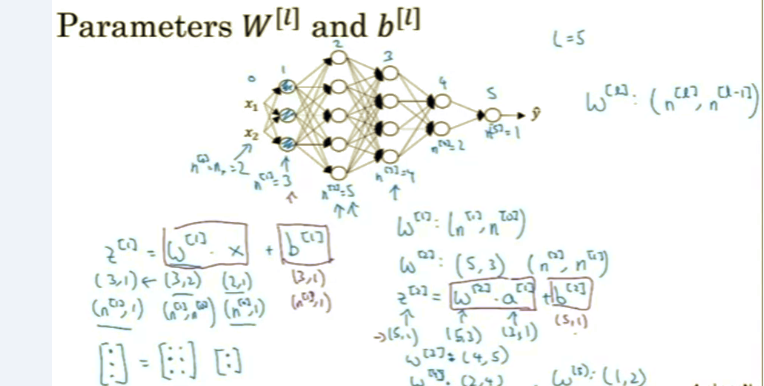 Parameters W^[l] and b^[l]
L = 5
0 1 2 3 4 5
x₁
x₂
ŷ
W^[l]: (n^[l], n^[l-1])
n^[0] = nₓ = 2
n^[1] = 3
n^[2] = 5
n^[3] = 4
n^[4] = 2
n^[5] = 1
z^[1] = W^[1] · x + b^[1]
(3,1) ← (3,2) (2,1) (3,1)
(n^[1],1) (n^[1],n^[0]) (n^[0],1) (n^[1],1)
[⋮] = [⋮⋮] [:]
W^[1]: (n^[1], n^[0])
W^[2]: (5,3) (n^[2], n^[1])
z^[2] = W^[2] · a^[1] + b^[2]
→(5,1) (5,3) (3,1) (5,1)
W^[3]: (4,5)
W^[4]: (2,4) W^[5]: (1,2)